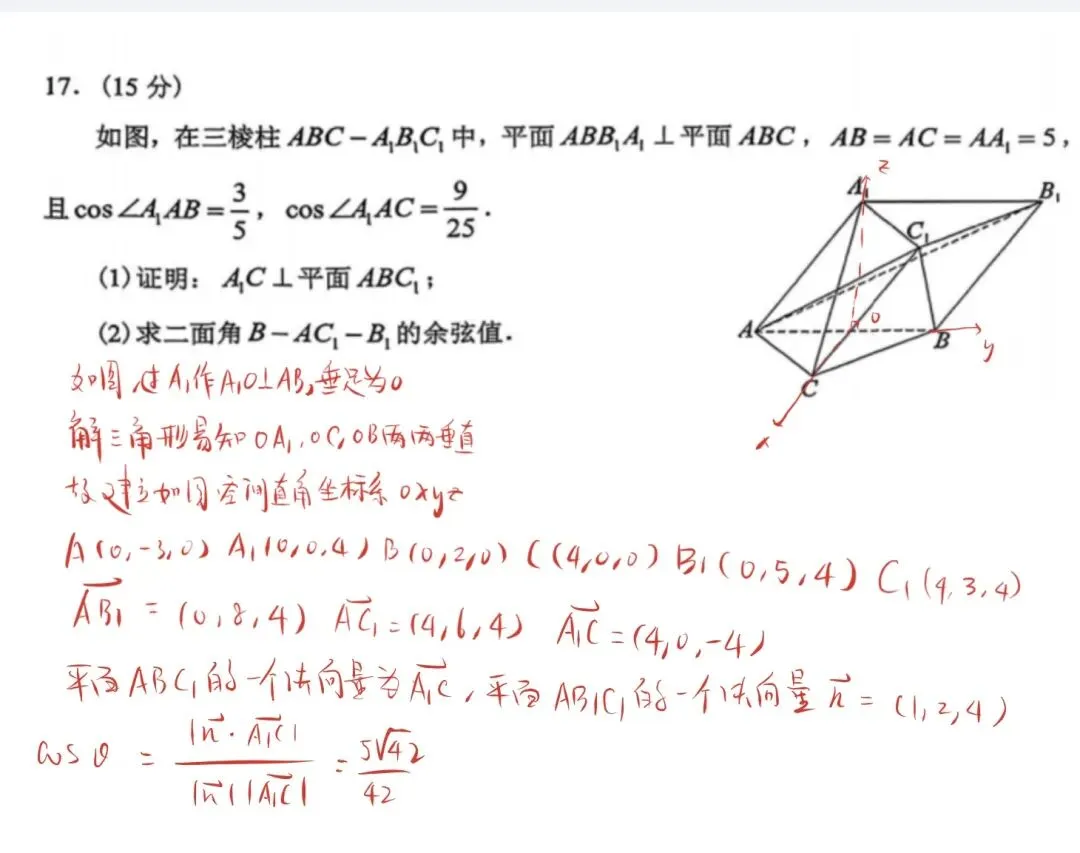 17. (15 分)
如图，在三棱柱 ABC－A₁B₁C₁ 中，平面 ABB₁A₁⊥平面 ABC，AB＝AC＝AA₁＝5，
且 cos∠A₁AB＝3/5，cos∠A₁AC＝9/25．
(1)证明：A₁C⊥平面 ABC₁；
(2)求二面角 B－AC₁－B₁ 的余弦值．
z
A₁
B₁
C₁
A
O
B
y
C
x
如图，过A₁作A₁O⊥AB，垂足为O
解三角形易知OA₁，OC，OB两两垂直
故建立如图空间直角坐标系 oxyz
A(0,-3,0) A₁(0,0,4) B(0,2,0) C(4,0,0) B₁(0,5,4) C₁(4,3,4)
AB₁ = (0,8,4) AC₁ = (4,6,4) A₁C = (4,0,-4)
平面ABC₁的一个法向量为A₁C，平面AB₁C₁的一个法向量n = (1,2,4)
cosθ = |n·A₁C| / |n||A₁C| = 5√42 / 42